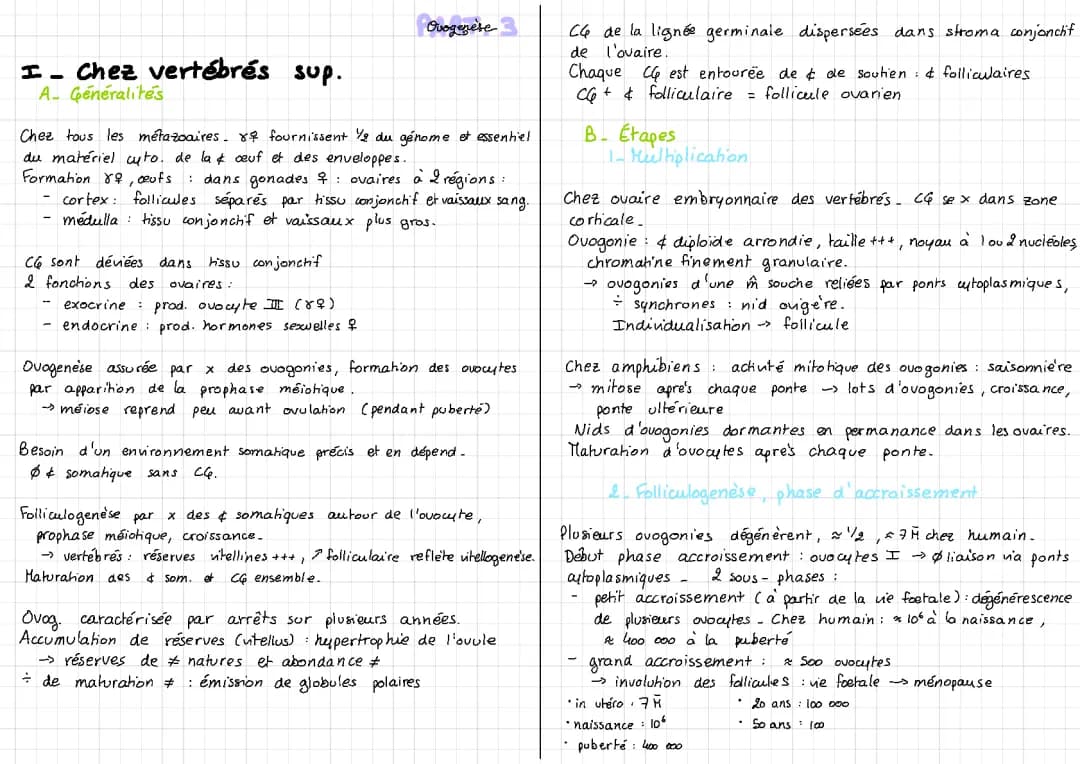 Ovogenèse
PART. 3
I - Chez vertébrés sup.
A- Généralités
Chez tous les métazoaires - γ♀ fournissent 1/2 du génome et essentiel
du matériel cyto. de la ¢ œuf et des enveloppes.
Formation γ♀, œufs : dans gonades ♀ : ovaires à 2 régions :
- cortex : follicules séparés par tissu conjonctif et vaissaux sang.
- médulla : tissu conjonctif et vaissaux plus gros.
CG sont déviées dans tissu conjonctif
2 fonctions des ovaires :
- exocrine : prod. ovocyte III (γ♀)
- endocrine : prod. hormones sexuelles ♀
Ovogenèse assurée par x des ovogonies, formation des ovocytes
par apparition de la prophase méiotique.
→ méiose reprend peu avant ovulation (pendant puberté)
Besoin d'un environnement somatique précis et en dépend.
Ø ¢ somatique sans CG.
Folliculogenèse par x des ¢ somatiques autour de l'ovocyte,
prophase méiotique, croissance.
→ vertébrés : réserves vitellines +++, ↗ folliculaire reflète vitellogenèse.
Maturation des ¢ som. et CG ensemble.
Ovog. caractérisée par arrêts sur plusieurs années.
Accumulation de réserves (vitellus) : hypertrophie de l'ovule
→ réserves de ≠ natures et abondance ≠
÷ de maturation ≠ : émission de globules polaires
CG de la lignée germinale dispersées dans stroma conjonctif
de l'ovaire.
Chaque CG est entourée de ¢ de soutien : ¢ folliculaires
CG + ¢ folliculaire = follicule ovarien
B- Étapes
1- Multiplication
Chez ovaire embryonnaire des vertébrés - CG se x dans zone
corticale.
Ovogonie : ¢ diploïde arrondie, taille +++, noyau à 1 ou 2 nucléoles,
chromatine finement granulaire.
→ ovogonies d'une m̂ souche reliées par ponts cytoplasmiques,
÷ synchrones : nid ovigère.
Individualisation → follicule
Chez amphibiens : activité mitotique des ovogonies : saisonnière
→ mitose après chaque ponte → lots d'ovogonies, croissance,
ponte ultérieure
Nids d'ovogonies dormantes en permanance dans les ovaires.
Maturation d'ovocytes après chaque ponte.
2- Folliculogenèse, phase d'accroissement
Plusieurs ovogonies dégénèrent, ≈ 1/2, ≈ 7M chez humain.
Début phase accroissement : ovocytes I → Ø liaison via ponts
cytoplasmiques - 2 sous-phases :
- petit accroissement (à partir de la vie foetale) : dégénérescence
de plusieurs ovocytes - Chez humain : ≈ 10⁶ à la naissance,
≈ 400 000 à la puberté
- grand accroissement : ≈ 500 ovocytes
→ involution des follicules : vie foetale → ménopause
• in utéro : 7M
• naissance : 10⁶
• puberté : 400 000
• 20 ans : 100 000
• 50 ans : 100